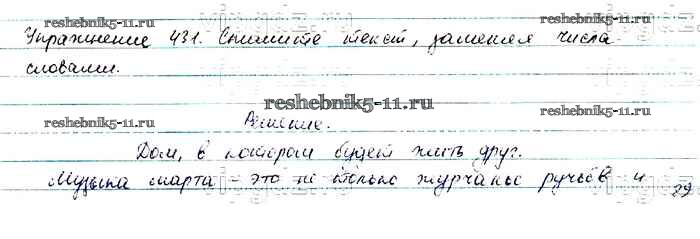 reshebnik5-11.ru reshebnik5-11.ru
Упражнение 431. Спишите текст, заменяя числа
словами.
reshebnik5-11.ru reshebnik5-11.ru reshebnik5-11.ru
Решение.
Дом, в котором будет жить друг.
Музыка марта – это не только журчанье ручьёв и
29